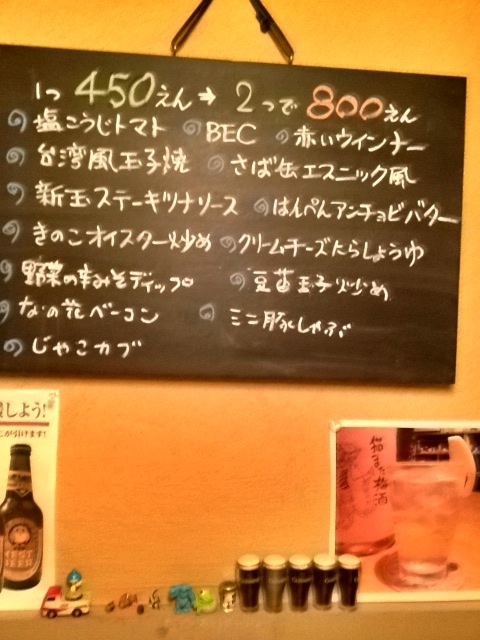 1つ 450えん → 2つで 800えん
塩こうじトマト BEC 赤いウインナー
台湾風玉子焼 さば缶エスニック風
新玉ステーキツナソース はんぺんアンチョビバター
きのこオイスター炒め クリームチーズたらしょうゆ
野菜の辛みそディップ 豆苗玉子炒め
なの花ベーコン ミニ豚しゃぶ
じゃこカブ
しよう!
が引けます!
梅酒